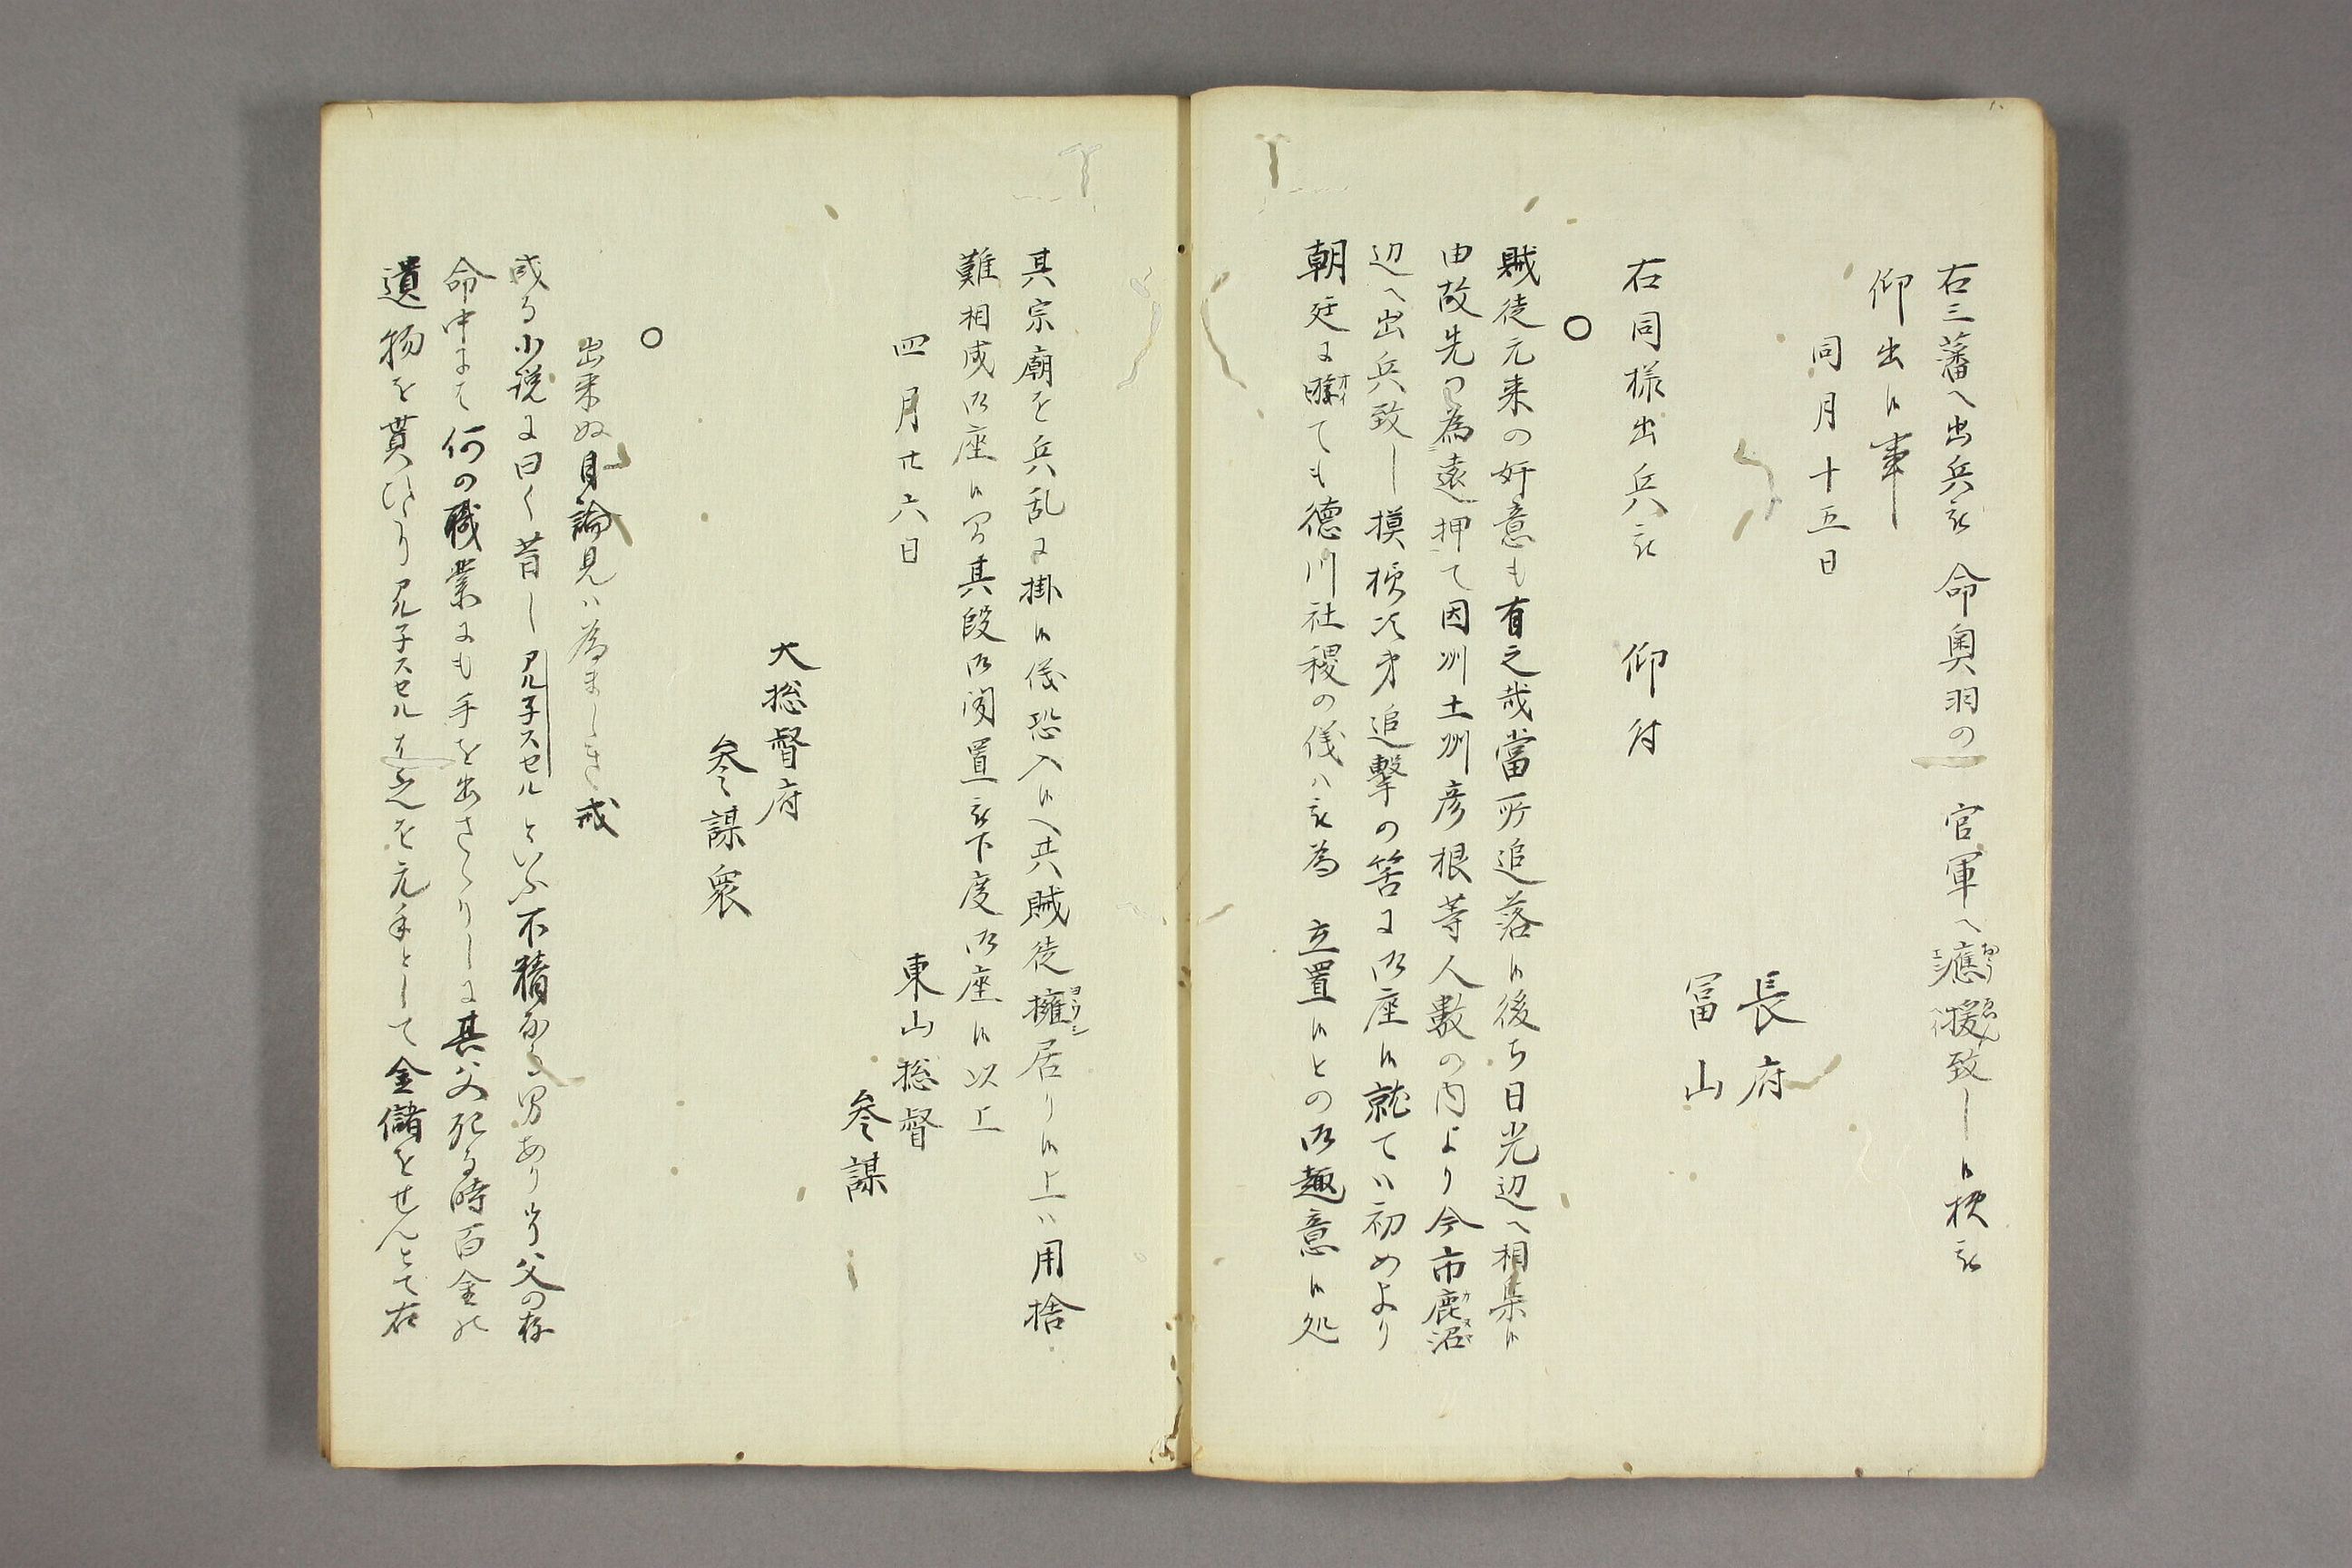 右三藩へ出兵被 命奥羽の 官軍へ應援致し候様被
仰出候事
同月十五日
長府
冨山
右同様出兵被 仰付
○
賊徒元来の奸意も有之哉當所追落候後ち日光辺へ相集候
由故先つ為遠押て因州土州彦根等人數の内より今市鹿沼
辺へ出兵致し摸様次第追撃の筈に御座候就てハ初めより
朝廷に於ても徳川社稷の儀ハ被為 立置候との御趣意候処
其宗廟を兵乱に掛候儀恐入候へ共賊徒擁居り候上ハ用捨
難相成御座候間其段御聞置被下度御座候以上
四月廿六日
東山総督
参謀
大総督府
参謀衆
○
出来ぬ目論見ハ為ましき戒
或る小説に曰く昔しアル子スセルといふ不精なる男あり父の存
命中にて何の職業にも手を出さゝりしに其父死る時百金の
遺物を貰ひたりアル子スセル之を元手として金儲をせんとて在